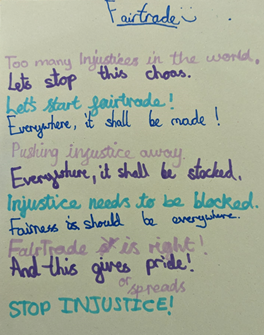 Fairtrade
Too many Injustices in the world.
Let's stop this choas.
Let's start fairtrade!
Everywhere, it shall be made!
Pushing injustice away.
Everywhere, it shall be stocked.
Injustice needs to be blocked.
Fairness is should be everywhere.
FairTrade is right!
And this gives pride!
or spreads
STOP INJUSTICE!